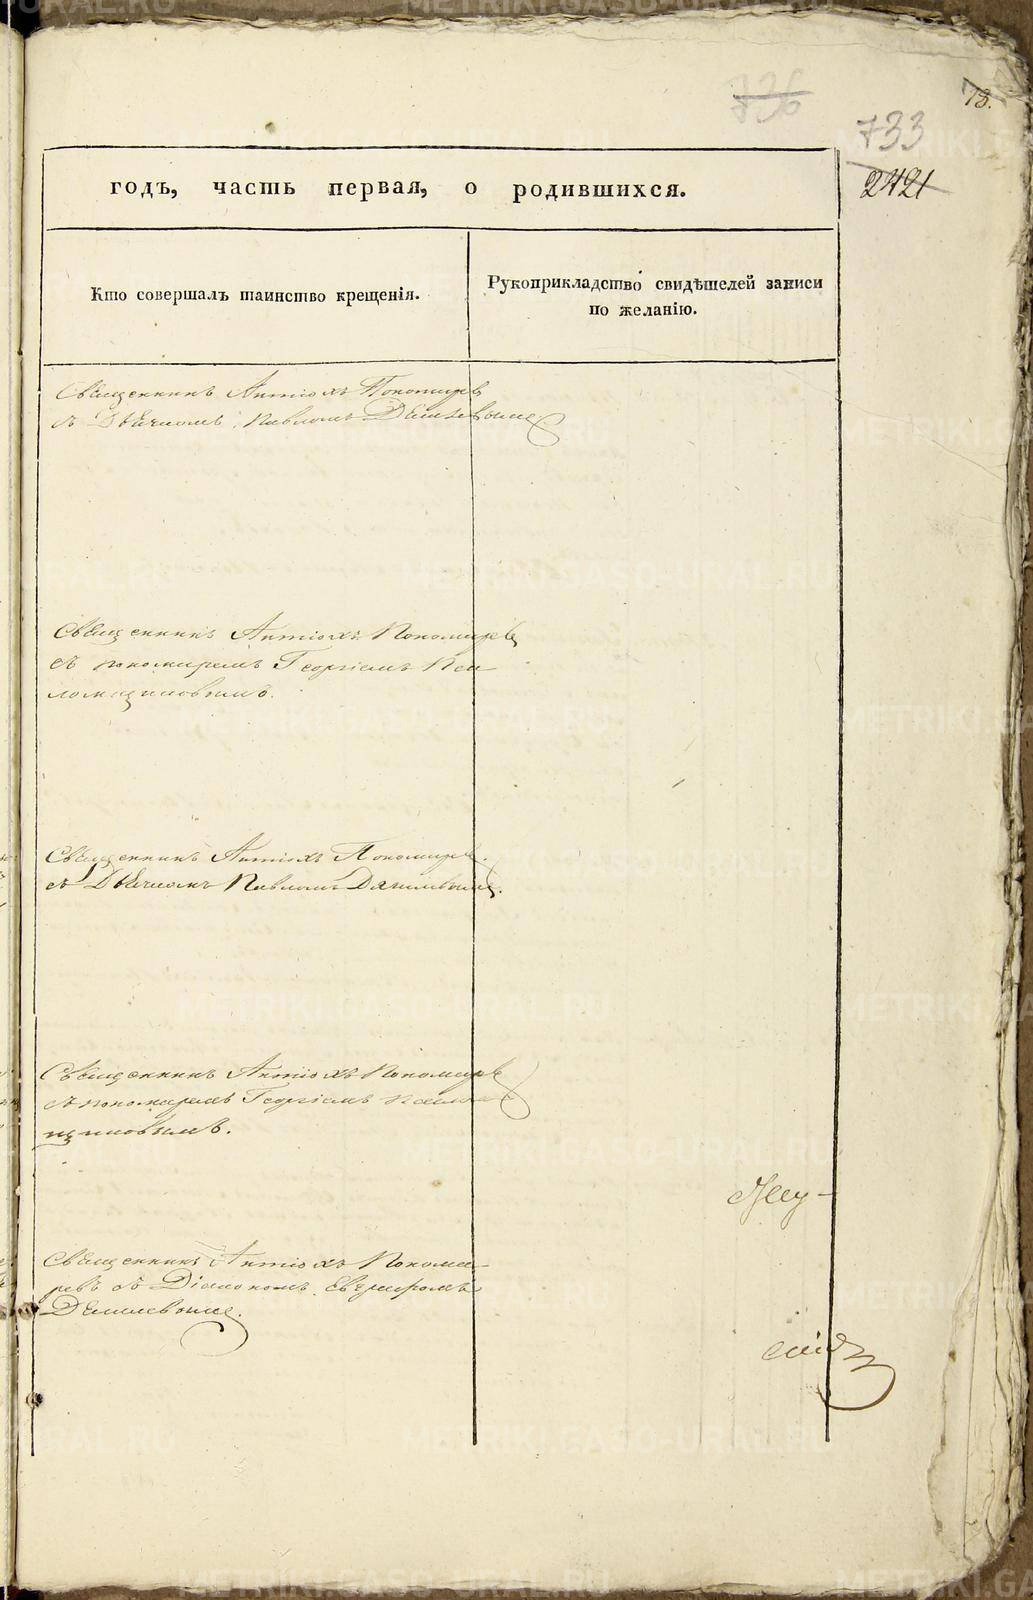 736
78.
733
2421
годъ, часть первая, о родившихся.
Кто совершалъ таинство крещенія.
Рукоприкладство свидѣтелей записи
по желанію.
Священникъ Антіохъ Пономаревъ
съ Дьячкомъ Павломъ
Священникъ Антіохъ Пономаревъ
съ пономаремъ Георгіемъ Пса-
ломщиковымъ.
Священникъ Антіохъ Пономаревъ
съ Дьячкомъ Павломъ
Священникъ Антіохъ Пономаревъ
съ пономаремъ Георгіемъ Псалом
щиковымъ.
Священникъ Антіохъ Понома-
ревъ съ Діакономъ
METRIKI.GASO-URAL.RU